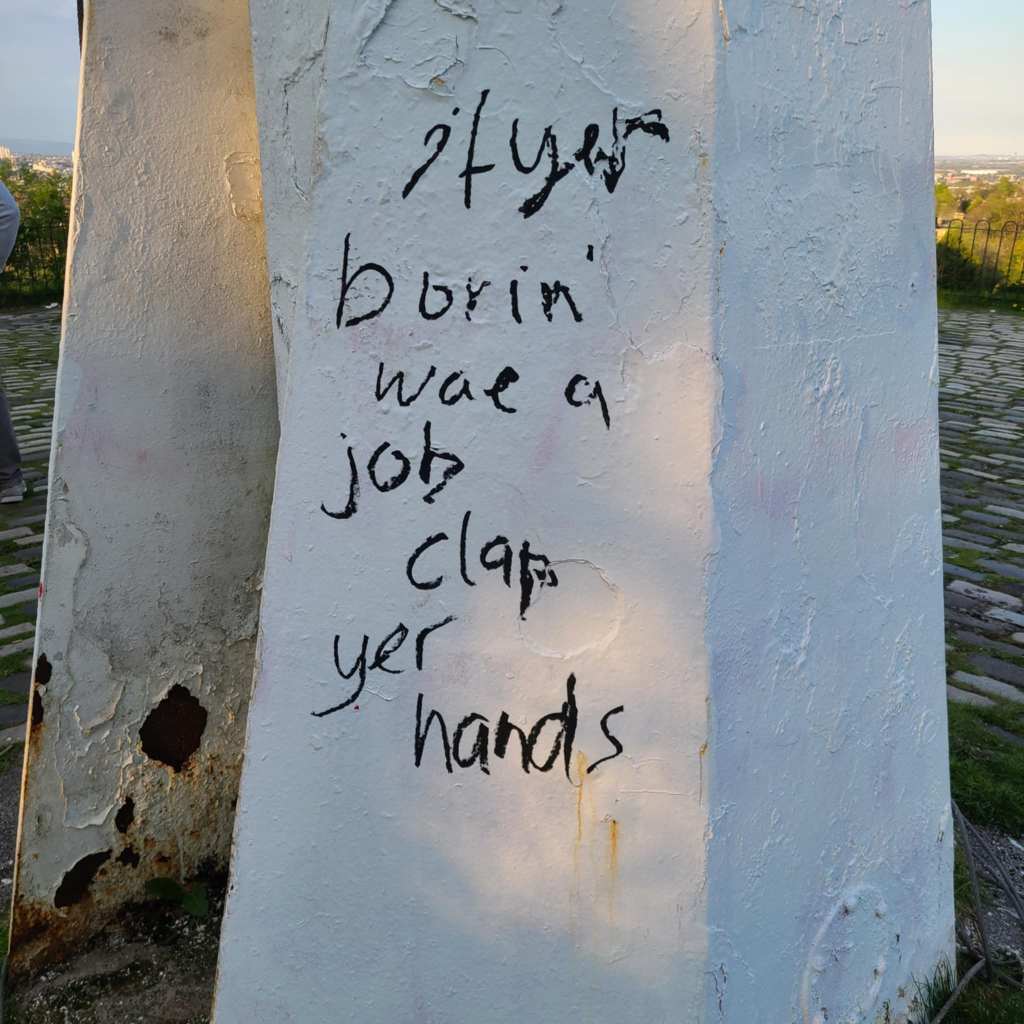 if yer
borin'
wae a
job
clap
yer
hands